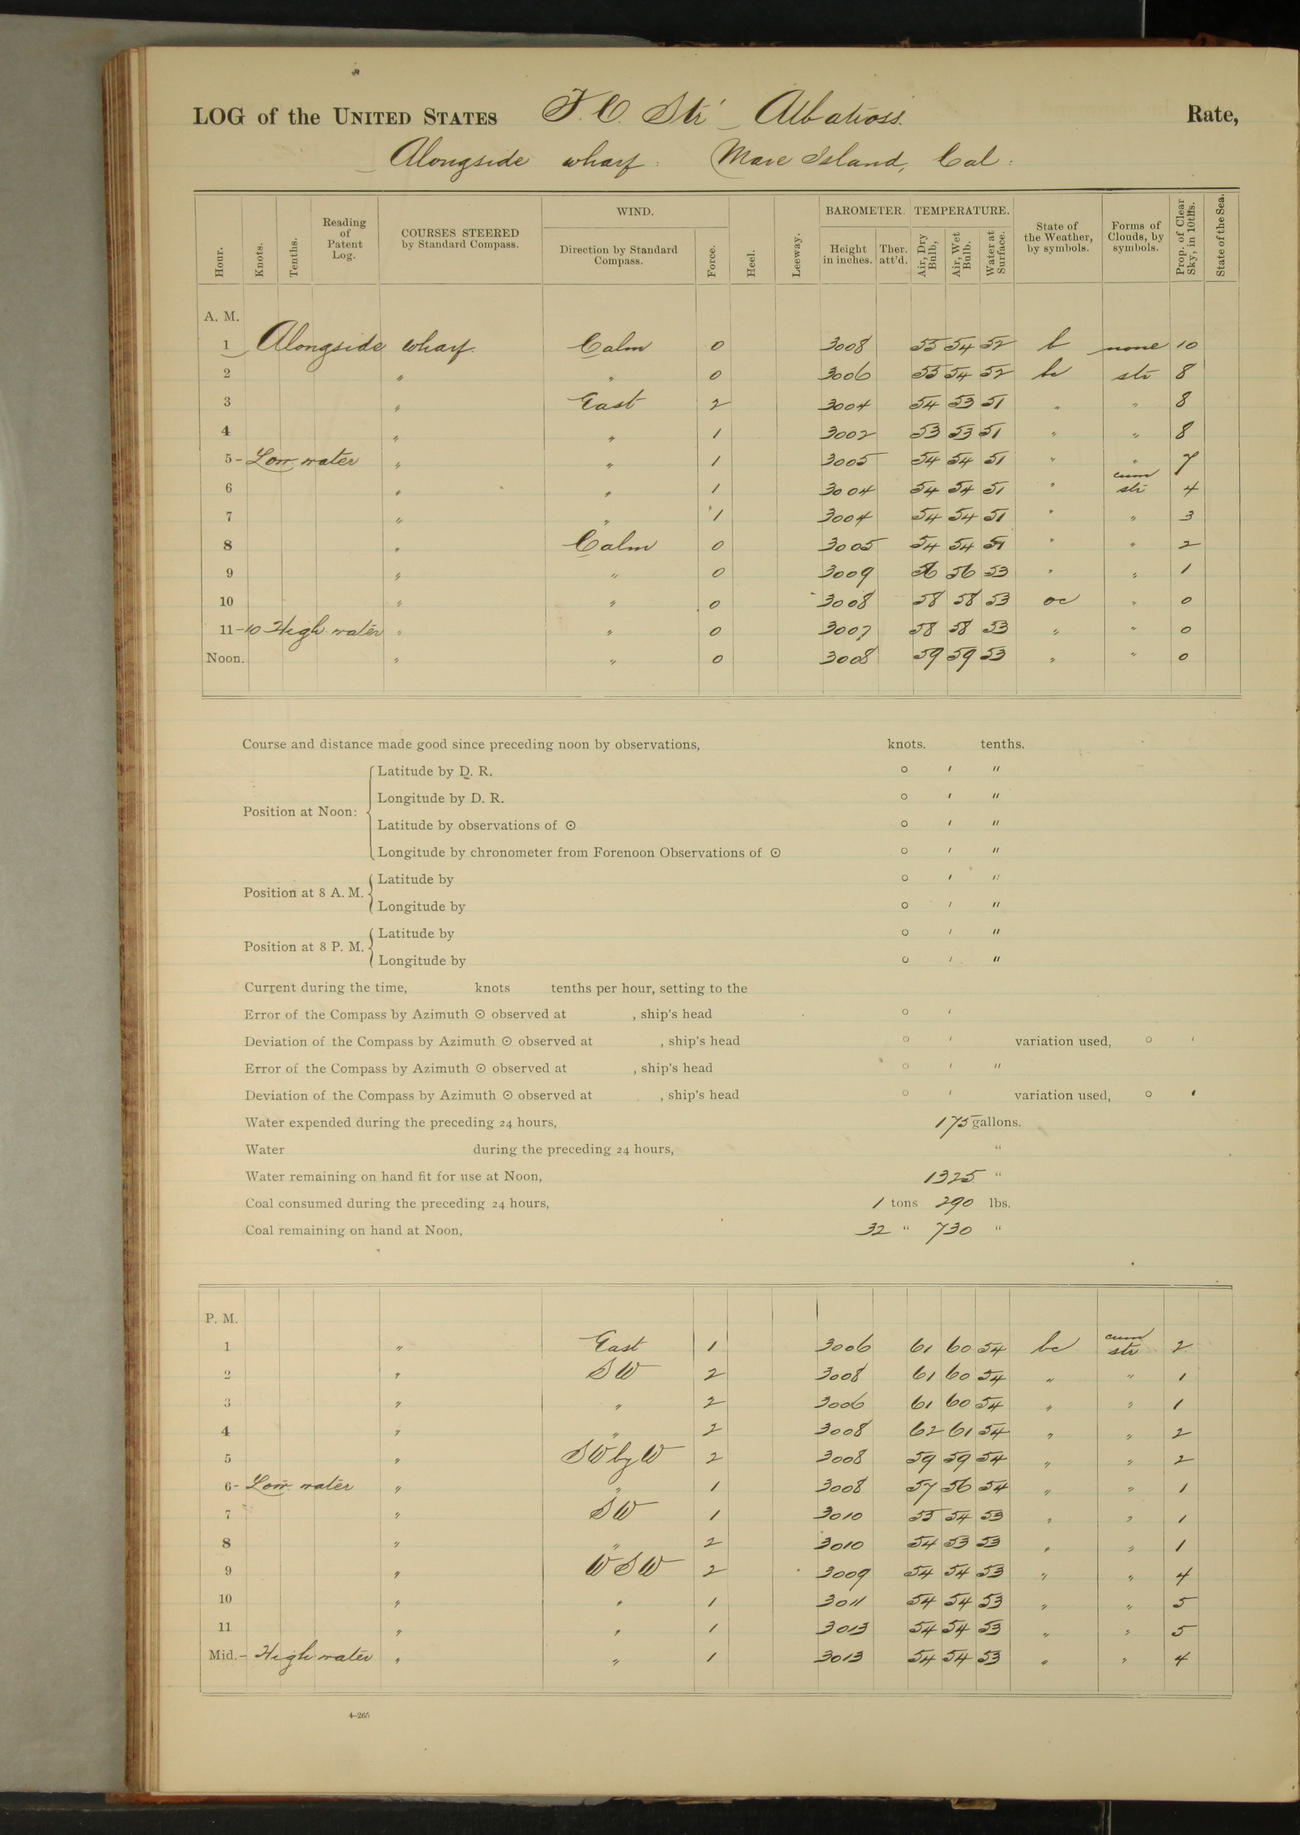 LOG of the UNITED STATES F. C. Str' Albatross. Rate,
Alongside wharf. Mare Island, Cal:
Hour. Knots. Tenths. Reading of Patent Log. COURSES STEERED by Standard Compass. WIND. Direction by Standard Compass. Force. Heel. Leeway. BAROMETER. Height in inches. Ther. att'd. TEMPERATURE. Air, Dry Bulb, Air, Wet Bulb. Water at Surface. State of the Weather, by symbols. Forms of Clouds, by symbols. Prop. of Clear Sky, in 10ths. State of the Sea.
A. M.
1 Alongside wharf. Calm 0 3008 55 54 52 b none 10
2 " " 0 3006 55 54 52 bc str 8
3 " East 2 3004 54 53 51 " " 8
4 " " 1 3002 53 53 51 " " 8
5 - Low water " " 1 3005 54 54 51 " " 7
6 " " 1 3004 54 54 51 " cum str 4
7 " " 1 3004 54 54 51 " " 3
8 " Calm 0 3005 54 54 51 " " 2
9 " " 0 3009 56 56 53 " " 1
10 " " 0 3008 58 58 53 oc " 0
11-10 High water " " 0 3007 58 58 53 " " 0
Noon. " " 0 3008 59 59 53 " " 0
Course and distance made good since preceding noon by observations, knots. tenths.
Position at Noon:
Latitude by D. R. ° ′ ″
Longitude by D. R. ° ′ ″
Latitude by observations of ⊙ ° ′ ″
Longitude by chronometer from Forenoon Observations of ⊙ ° ′ ″
Position at 8 A. M.
Latitude by ° ′ ″
Longitude by ° ′ ″
Position at 8 P. M.
Latitude by ° ′ ″
Longitude by ° ′ ″
Current during the time, knots tenths per hour, setting to the
Error of the Compass by Azimuth ⊙ observed at , ship's head ° ′
Deviation of the Compass by Azimuth ⊙ observed at , ship's head ° ′ variation used, ° ′
Error of the Compass by Azimuth ⊙ observed at , ship's head ° ′ ″
Deviation of the Compass by Azimuth ⊙ observed at , ship's head ° ′ variation used, ° ′
Water expended during the preceding 24 hours, 175 gallons.
Water during the preceding 24 hours, "
Water remaining on hand fit for use at Noon, 1325 "
Coal consumed during the preceding 24 hours, 1 tons 290 lbs.
Coal remaining on hand at Noon, 32 " 730 "
P. M.
1 " East 1 3006 61 60 54 bc cum str 2
2 " SW 2 3008 61 60 54 " " 1
3 " " 2 3006 61 60 54 " " 1
4 " " 2 3008 62 61 54 " " 2
5 " SW by W 2 3008 59 59 54 " " 2
6- Low water " " 1 3008 57 56 54 " " 1
7 " SW 1 3010 55 54 53 " " 1
8 " " 2 3010 54 53 53 " " 1
9 " WSW 2 3009 54 54 53 " " 4
10 " " 1 3011 54 54 53 " " 5
11 " " 1 3013 54 54 53 " " 5
Mid.- High water " " 1 3013 54 54 53 " " 4
4-265